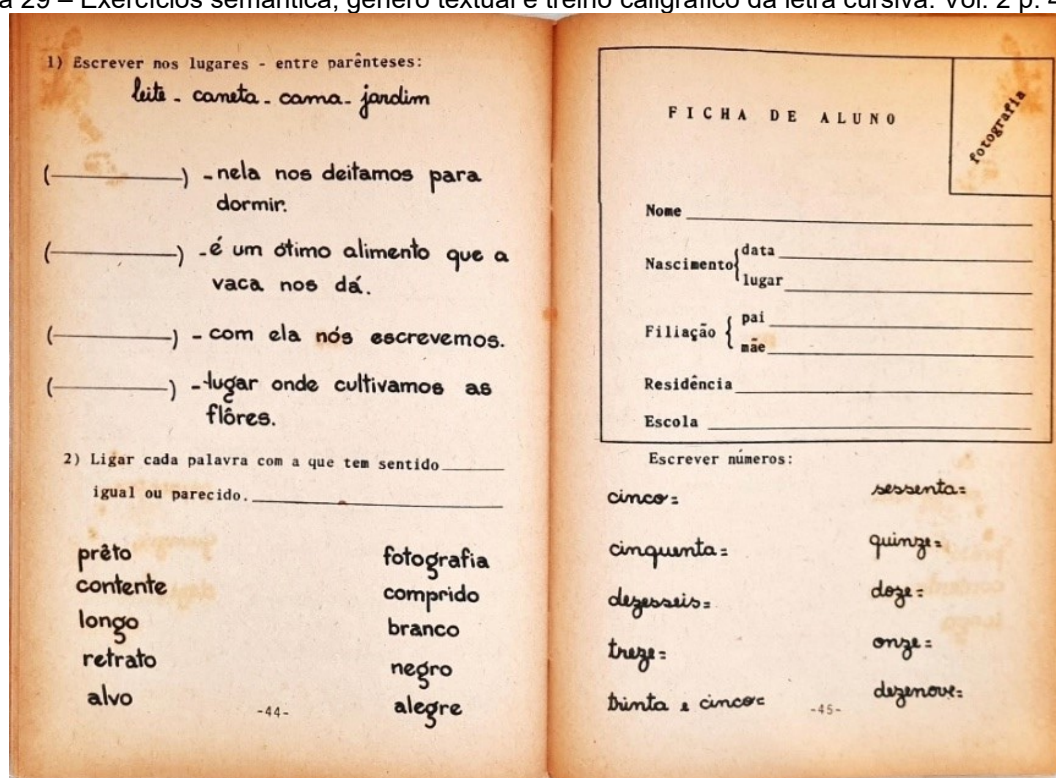 a 29 – Exercícios semântica, gênero textual e treino caligráfico da letra cursiva. Vol. 2 p. 4
1) Escrever nos lugares - entre parênteses:
leite - caneta - cama - jardim
(__________) - nela nos deitamos para
dormir.
(__________) - é um ótimo alimento que a
vaca nos dá.
(__________) - com ela nós escrevemos.
(__________) - lugar onde cultivamos as
flôres.
2) Ligar cada palavra com a que tem sentido______
igual ou parecido.__________
prêto fotografia
contente comprido
longo branco
retrato negro
alvo alegre
-44-
FICHA DE ALUNO
fotografia
Nome __________
Nascimento{ data __________
lugar __________
Filiação { pai __________
mãe __________
Residência __________
Escola __________
Escrever números:
cinco= sessenta=
cinquenta= quinze=
dezesseis= doze=
treze= onze=
trinta e cinco= dezenove=
-45-